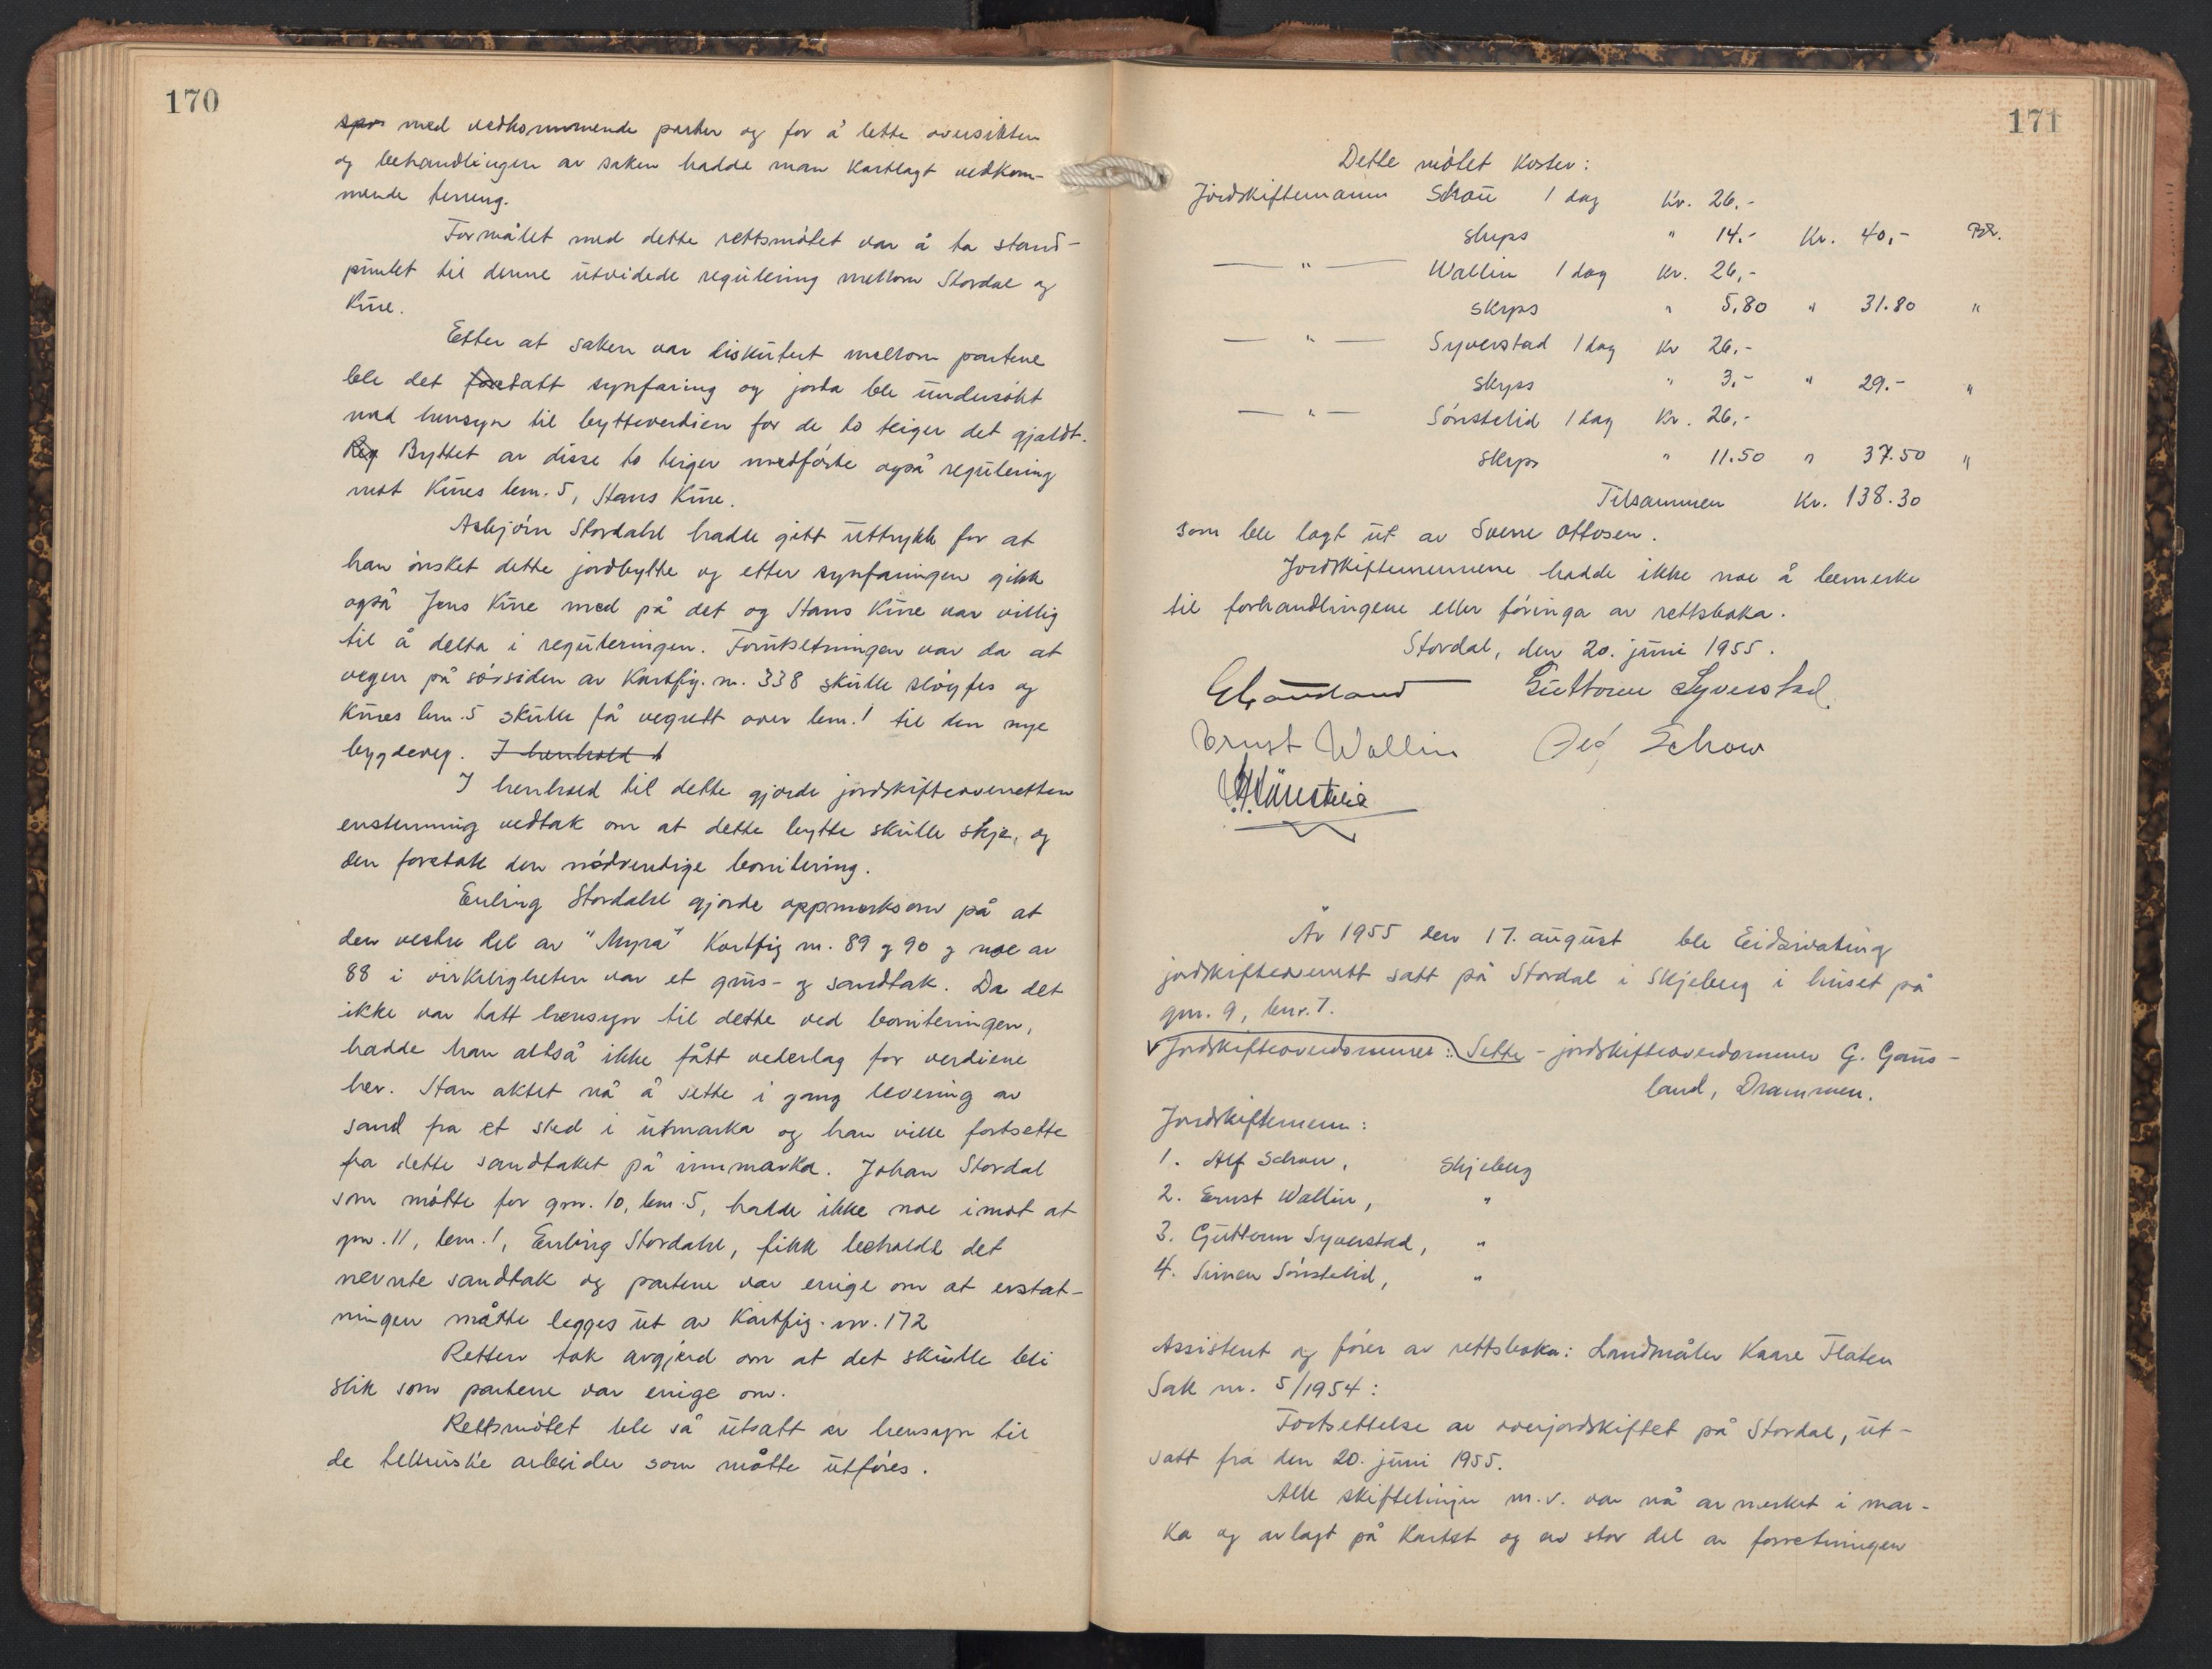 170
med vedkommende parter og for å lette oversikten
og behandlingen av saken hadde man kartlagt vedkom-
mende terreng.
Formålet med dette rettsmötet var å ta stand-
punktet til denne utvidede regulering mellom Stordal og
Kure.
Etter at saken var diskutert mellom partene
ble det foretatt synfaring og jorda ble undersökt
med hensyn til bytteverdien for de to teiger det gjaldt.
Reg Byttet av disse to teiger medförte også regulering
mot Kures bnr. 5, Hans Kure.
Asbjörn Stordahl hadde gitt uttrykk for at
han önsket dette jordbytte og etter synfaringen gikk
også Jens Kure med på det og Hans Kure var villig
til å delta i reguleringen. Forutsetningen var da at
vegen på sörsiden av Kartfig. nr. 338 skulle slöyfes og
Kures bnr. 5 skulle få vegrett over bnr. 1 til den nye
bygdeveg. I henhold t
I henhold til dette gjorde jordskifteoverretten
enstemmig vedtak om at dette bytte skulle skje, og
den foretok den nödvendige bonitering.
Erling Stordahl gjorde oppmerksom på at
den vestre del av "Myra" Kartfig nr. 89 g 90 g noe av
88 i virkeligheten var et grus- g sandtak. Da det
ikke var tatt hensyn til dette ved boniteringen,
hadde han altså ikke fått vederlag for verdiene
her. Han aktet nå å sette i gang levering av
sand fra et sted i utmarka og han ville fortsette
fra dette sandtaket på innmarka. Johan Stordal
som mötte for gnr. 10, bnr. 5, hadde ikke noe imot at
gnr. 11, bnr. 1, Erling Stordahl, fikk beholde det
nevnte sandtak og partene var enige om at erstat-
ningen måtte legges ut av Kartfig. nr. 172
Retten tok avgjerd om at det skulle bli
slik som partene var enige om.
Rettsmötet ble så utsatt av hensyn til
de tekniske arbeider som måtte utföres.
171
Dette mötet koster:
Jordskiftemann Schou 1 dag Kr. 26,-
skyss " 14.- Kr. 40,- Bt.
— " — Wallin 1 dag Kr. 26,-
skyss " 5,80 " 31.80 "
— " — Syverstad 1 dag Kr 26,-
skyss " 3,- " 29.- "
— " — Sönstelid 1 dag Kr. 26,-
skyss " 11.50 " 37.50 "
Tilsammen Kr. 138.30
som ble lagt ut av Sverre Ottosen.
Jordskiftemennene hadde ikke noe å bemerke
til forhandlingene eller föringa av rettsboka.
Stordal, den 20. juni 1955.
G Gausland Guttorm Syverstad
Ernst Wallin Alf Schou
Sönstelid
År 1955 den 17. august ble Eidsivating
jordskifteoverrett satt på Stordal i Skjeberg i huset på
gnr. 9, bnr. 7.
Jordskifteoverdommer: Sette-jordskifteoverdommer G. Gaus-
land, Drammen.
Jordskiftemenn:
1. Alf Schou, Skjeberg
2. Ernst Wallin, "
3. Guttorm Syverstad, "
4. Simen Sönstelid, "
Assistent og förer av rettsboka: Landmåler Kaare Flaten
Sak nr. 5/1954:
Fortsettelse av overjordskiftet på Stordal, ut-
satt fra den 20. juni 1955.
Alle skiftelinjer m.v. var nå avmerket i mar-
ka og avlagt på kartet og en stor del av forretningen